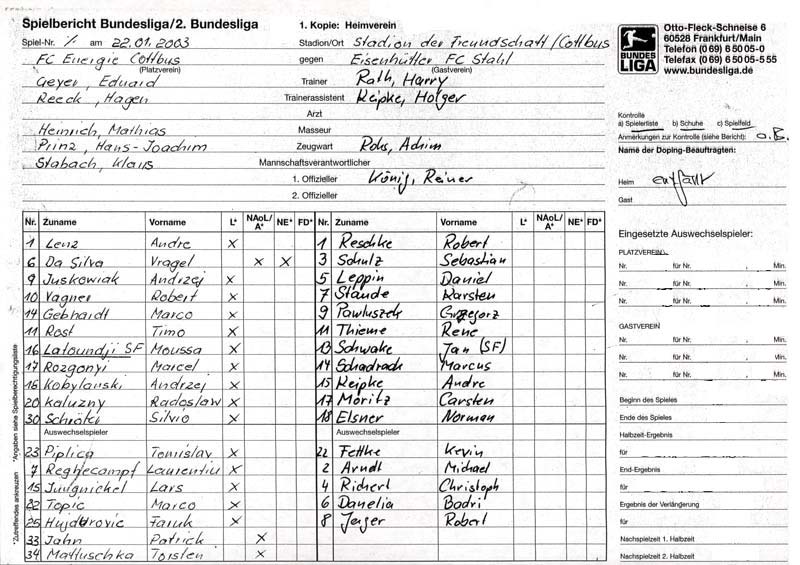 Spielbericht Bundesliga/2. Bundesliga 1. Kopie: Heimverein
Spiel-Nr. ·/. am 22.01.2003 Stadion/Ort Stadion der Freundschaft/Cottbus
FC Energie Cottbus gegen Eisenhütter FC Stahl
(Platzverein) (Gastverein)
Geyer, Eduard Trainer Rath, Harry
Reeck, Hagen Trainerassistent Keipke, Holger
Arzt
Heinrich, Mathias Masseur
Prinz, Hans-Joachim Zeugwart Rohs, Achim
Stabach, Klaus Mannschaftsverantwortlicher
1. Offizieller König, Reiner
2. Offizieller
BUNDES LIGA
Otto-Fleck-Schneise 6
60528 Frankfurt/Main
Telefon (0 69) 6 50 05-0
Telefax (0 69) 6 50 05-5 55
www.bundesliga.de
Kontrolle
a) Spielerliste b) Schuhe c) Spielfeld
Anmerkungen zur Kontrolle (siehe Bericht): o.B.
Name der Doping-Beauftragten:
Heim entfällt
Gast
Nr. Zuname Vorname L* NAoL/A* NE* FD* Nr. Zuname Vorname L* NAoL/A* NE* FD*
1 Lenz Andre X 1 Reschke Robert
6 Da Silva Vragel X X 3 Schulz Sebastian
9 Juskowiak Andrzej X 5 Leppin Daniel
10 Vagner Robert X 7 Staude Karsten
14 Gebhardt Marco X 9 Pawluszek Grzegorz
11 Rost Timo X 11 Thieme Rene
16 Latoundji SF Moussa X 13 Schwake Jan (SF)
17 Rozgonyi Marcel X 14 Schadrach Marcus
18 Kobylanski Andrzej X 15 Keipke Andre
20 Kaluzny Radoslaw X 17 Moritz Carsten
30 Schröter Silvio X 18 Elsner Norman
Auswechselspieler Auswechselspieler
23 Piplica Tomislav X 22 Fettke Kevin
7 Reghecampf Laurentiu X 2 Arndt Michael
15 Jungnickel Lars X 4 Richert Christoph
22 Topic Marco X 6 Danelia Badri
25 Hujdurovic Faruk X 8 Jerger Robert
33 Jahn Patrick X
34 Mattuschka Torsten X
*Zutreffendes ankreuzen *Angaben siehe Spielberechtigungsliste
Eingesetzte Auswechselspieler:
PLATZVEREIN
Nr. für Nr. , Min.
Nr. für Nr. , Min.
Nr. für Nr. , Min.
GASTVEREIN
Nr. für Nr. , Min.
Nr. für Nr. , Min.
Nr. für Nr. , Min.
Beginn des Spieles
Ende des Spieles
Halbzeit-Ergebnis
für
End-Ergebnis
für
Ergebnis der Verlängerung
für
Nachspielzeit 1. Halbzeit
Nachspielzeit 2. Halbzeit